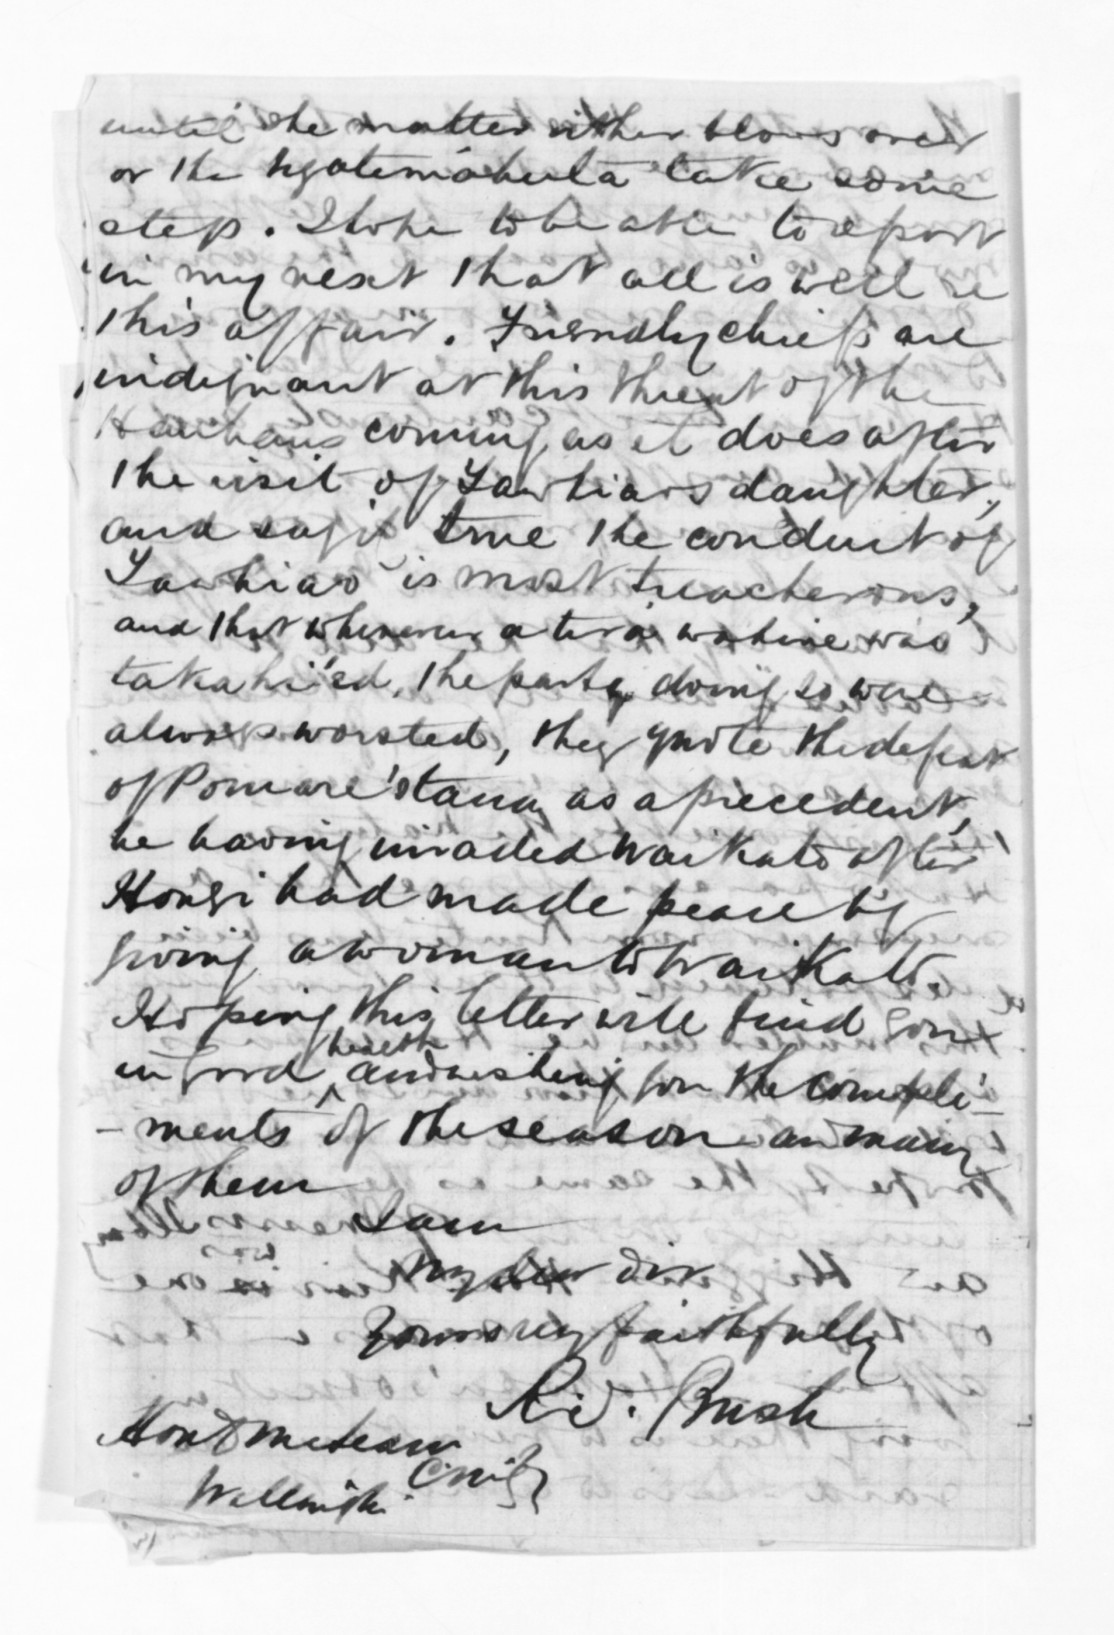 until the matter either blows over
or the Ngatimahuta take some
step. I hope to be able to report
in my next that all is well re
this affair. Friendly chiefs are
indignant at this threat of the
Hauhaus coming as it does after
the visit of Tawhiao's daughter,
and say if true the conduct of
Tawhiao is most treacherous,
and that whenever a wahine was
takahi'ed, the party doing so were
always worsted, they quote the defeat
of Pomare's taua as a precedent,
he having invaded Waikato after
Hongi had made peace by
giving a woman to Waikato.
Hoping this letter will find you
in good health and wishing you the compli-
-ments of the season an many
of them
I am
My dear Sir
Yours very faithfully
R. Bush
Hon D McLean
Wellington